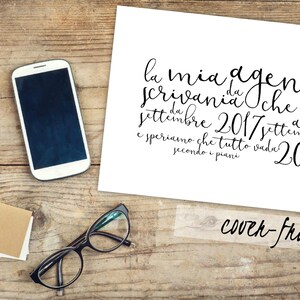 la mia agen
da
scrivania che
da a
settembre 2017 sette
e speriamo che tutto vada 20
secondo i piani
cover-fr